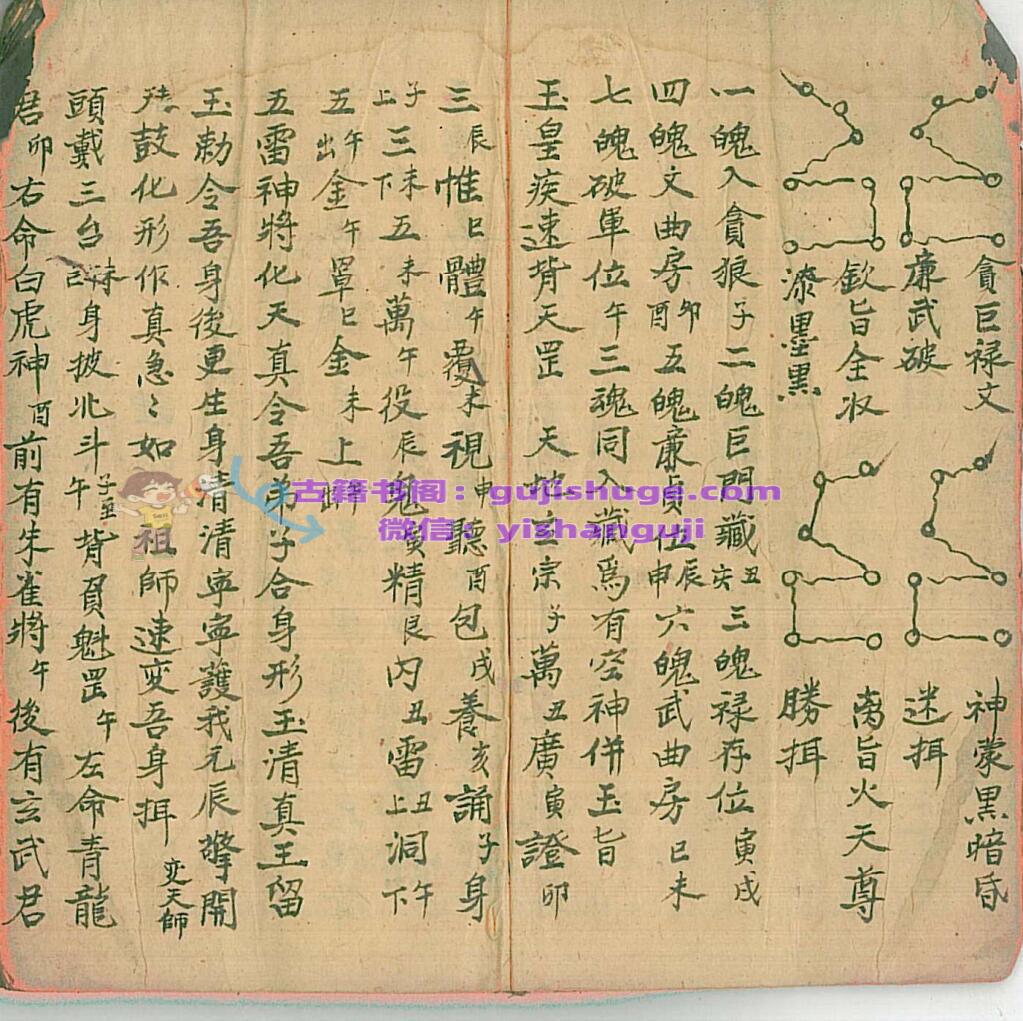 貪巨禄文
廉武破
欽旨全收
漆墨黑
神蒙黑暗昏
迷挕
离旨火天尊
勝挕
一魄入貪狼子二魄巨門藏丑亥三魄禄存位寅戌
四魄文曲房卯酉五魄廉貞位辰申六魄武曲房巳未
七魄破軍位午三魂同入藏爲有空神併玉旨
玉皇疾速背天罡 天地玄宗子萬丑廣寅證卯
三辰惟巳體午覆未視申聽酉包戌養亥誦子身
上子三下未五未萬午役辰鬼精艮內丑雷上丑洞下午
五出午金午罩巳金未上
五雷神將化天真令吾弟子合身形玉清真王留
玉勅令吾身後更生身清清寧寧護我元辰擎開
鼓化形作真急〻如祖師速变吾身挕变天師
頭戴三台未身披北斗午子背負魁罡午左命青龍
君卯右命白虎神酉前有朱雀將午後有玄武君
古籍书阁：gujishuge.com
微信：yishanguji